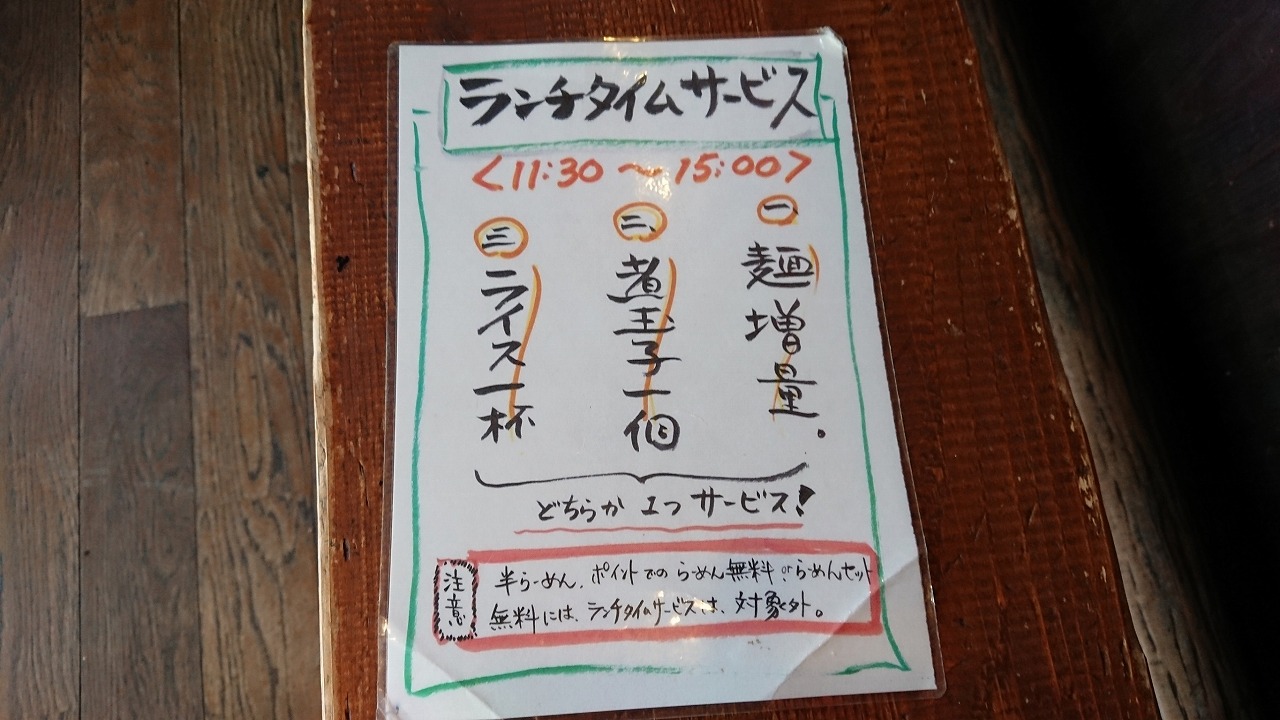 ランチタイムサービス
<11:30 〜 15:00>
一、麺増量。
二、煮玉子一個
三、ライス一杯
どちらか1つサービス!
注意
半らーめん、ポイントでのらーめん無料orらーめんセット
無料には、ランチタイムサービスは、対象外。